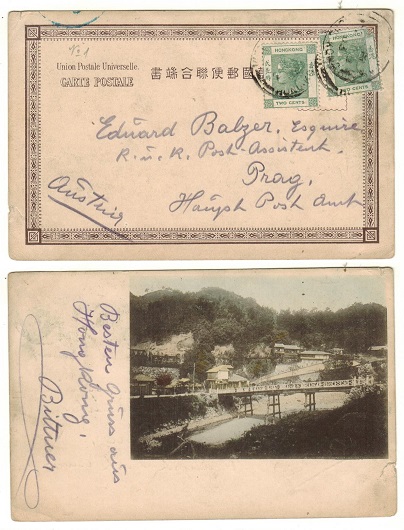 Union Postale Universelle.
CARTE POSTALE
書端合聯便郵國
HONGKONG
TWO CENTS
HONGKONG
CENTS
Eduard Balzer, Esquire
K. u. K. Post-Assistent,
Prag,
Haupt Post Amt
Austria
Besten Gruss aus
Hongkong,
Bittner